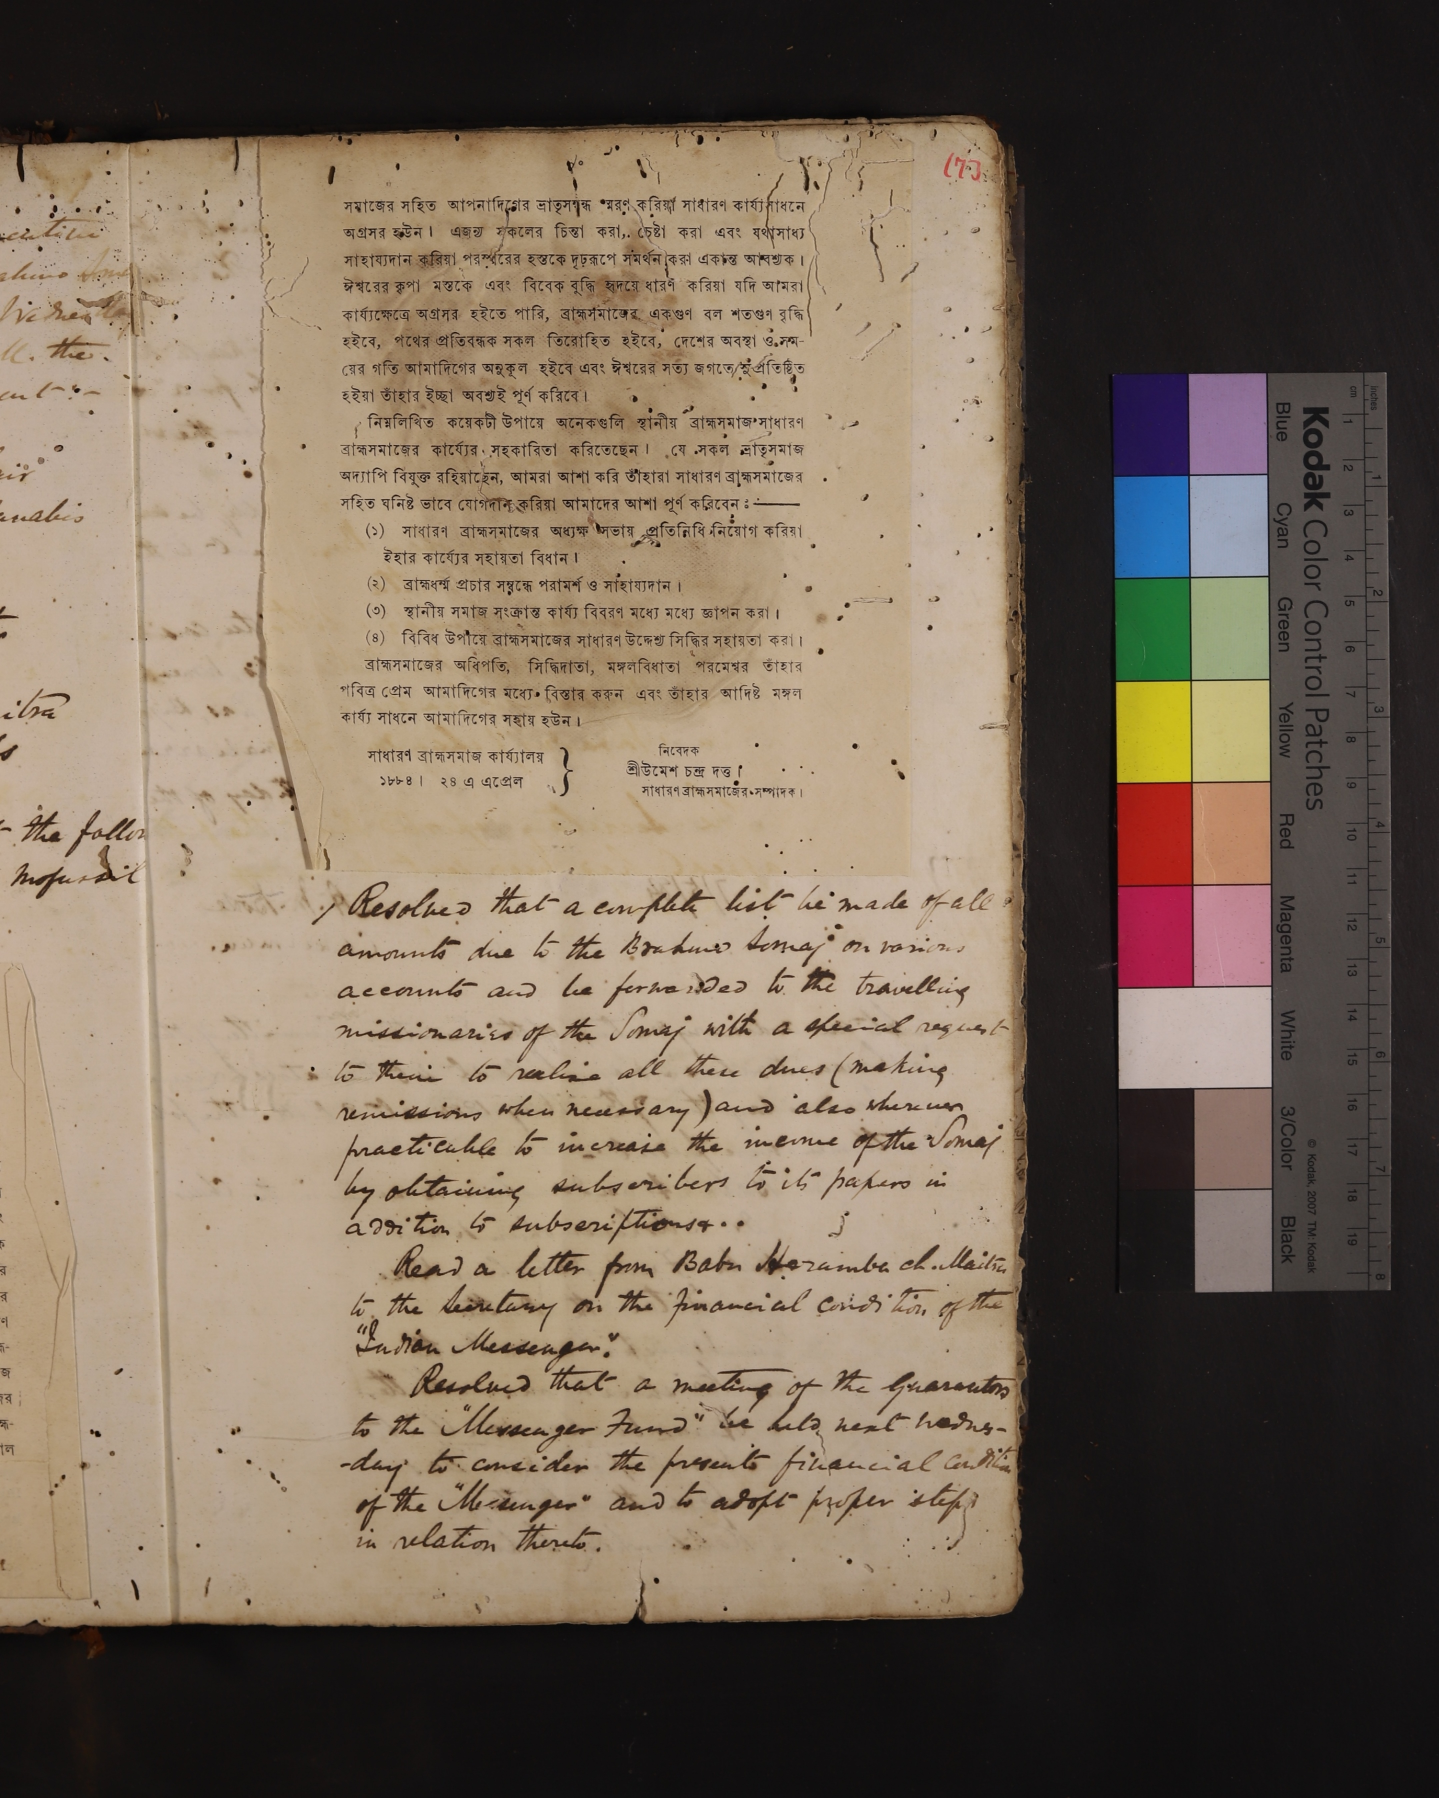 (7)
সমাজের সহিত আপনাদিগের ভ্রাতৃসম্বন্ধ স্মরণ করিয়া সাধারণ কার্য্যসাধনে
অগ্রসর হউন। এজন্য সকলের চিন্তা করা, চেষ্টা করা এবং যথাসাধ্য
সাহায্যদান করিয়া পরস্পরের হস্তকে দৃঢ়রূপে সমর্থন করা একান্ত আবশ্যক।
ঈশ্বরের কৃপা মস্তকে এবং বিবেক বুদ্ধি হৃদয়ে ধারণ করিয়া যদি আমরা
কার্য্যক্ষেত্রে অগ্রসর হইতে পারি, ব্রাহ্মসমাজের একগুণ বল শতগুণ বৃদ্ধি
হইবে, পথের প্রতিবন্ধক সকল তিরোহিত হইবে, দেশের অবস্থা ও সম-
য়ের গতি আমাদিগের অনুকূল হইবে এবং ঈশ্বরের সত্য জগতে সুপ্রতিষ্ঠিত
হইয়া তাঁহার ইচ্ছা অবশ্যই পূর্ণ করিবে।
নিম্নলিখিত কয়েকটী উপায়ে অনেকগুলি স্থানীয় ব্রাহ্মসমাজ সাধারণ
ব্রাহ্মসমাজের কার্য্যের সহকারিতা করিতেছেন। যে সকল ভ্রাতৃসমাজ
অদ্যাপি বিযুক্ত রহিয়াছেন, আমরা আশা করি তাঁহারা সাধারণ ব্রাহ্মসমাজের
সহিত ঘনিষ্ট ভাবে যোগদান করিয়া আমাদের আশা পূর্ণ করিবেন :—
(১) সাধারণ ব্রাহ্মসমাজের অধ্যক্ষ সভায় প্রতিনিধি নিয়োগ করিয়া
ইহার কার্য্যের সহায়তা বিধান।
(২) ব্রাহ্মধর্ম্ম প্রচার সম্বন্ধে পরামর্শ ও সাহায্যদান।
(৩) স্থানীয় সমাজ সংক্রান্ত কার্য্য বিবরণ মধ্যে মধ্যে জ্ঞাপন করা।
(৪) বিবিধ উপায়ে ব্রাহ্মসমাজের সাধারণ উদ্দেশ্য সিদ্ধির সহায়তা করা।
ব্রাহ্মসমাজের অধিপতি, সিদ্ধিদাতা, মঙ্গলবিধাতা পরমেশ্বর তাঁহার
পবিত্র প্রেম আমাদিগের মধ্যে বিস্তার করুন এবং তাঁহার আদিষ্ট মঙ্গল
কার্য্য সাধনে আমাদিগের সহায় হউন।
সাধারণ ব্রাহ্মসমাজ কার্য্যালয়
১৮৮৪। ২৪ এ এপ্রেল
নিবেদক
শ্রীউমেশ চন্দ্র দত্ত।
সাধারণ ব্রাহ্মসমাজের সম্পাদক।
Resolved that a complete list be made of all
amounts due to the Brahmo Somaj on various
accounts and be forwarded to the travelling
missionaries of the Somaj with a special request
to them to realise all these dues (making
remissions when necessary) and also wherever
practicable to increase the income of the Somaj
by obtaining subscribers to its papers in
addition to subscriptions
Read a letter from Babu Heramba ch. Maitra
to the Secretary on the financial condition of the
"Indian Messenger".
Resolved that a meeting of the Guarantors
to the "Messenger Fund" be held next Wednes-
-day to consider the present financial condition
of the "Messenger" and to adopt proper steps
in relation thereto.
the follow
Mofussil
Kodak Color Control Patches
Blue
Cyan
Green
Yellow
Red
Magenta
White
3/Color
Black
© Kodak, 2007 TM: Kodak
cm 1 2 3 4 5 6 7 8 9 10 11 12 13 14 15 16 17 18 19
inches 1 2 3 4 5 6 7 8